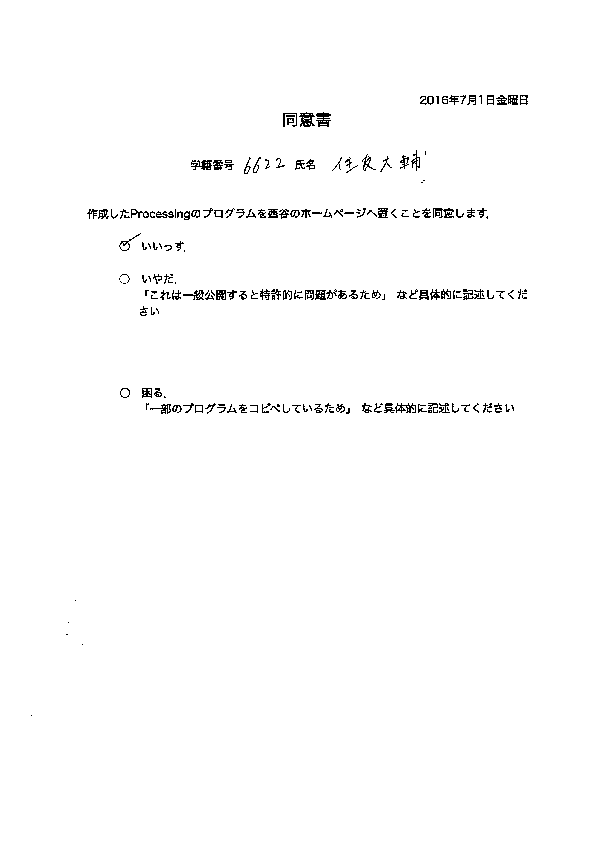 2016年7月1日金曜日
同意書
学籍番号 6622 氏名 住友大輔
作成したProcessingのプログラムを西谷のホームページへ置くことを同意します.
いいっす.
○ いやだ.
「これは一般公開すると特許的に問題があるため」 など具体的に記述してくだ
さい
○ 困る.
「一部のプログラムをコピペしているため」 など具体的に記述してください